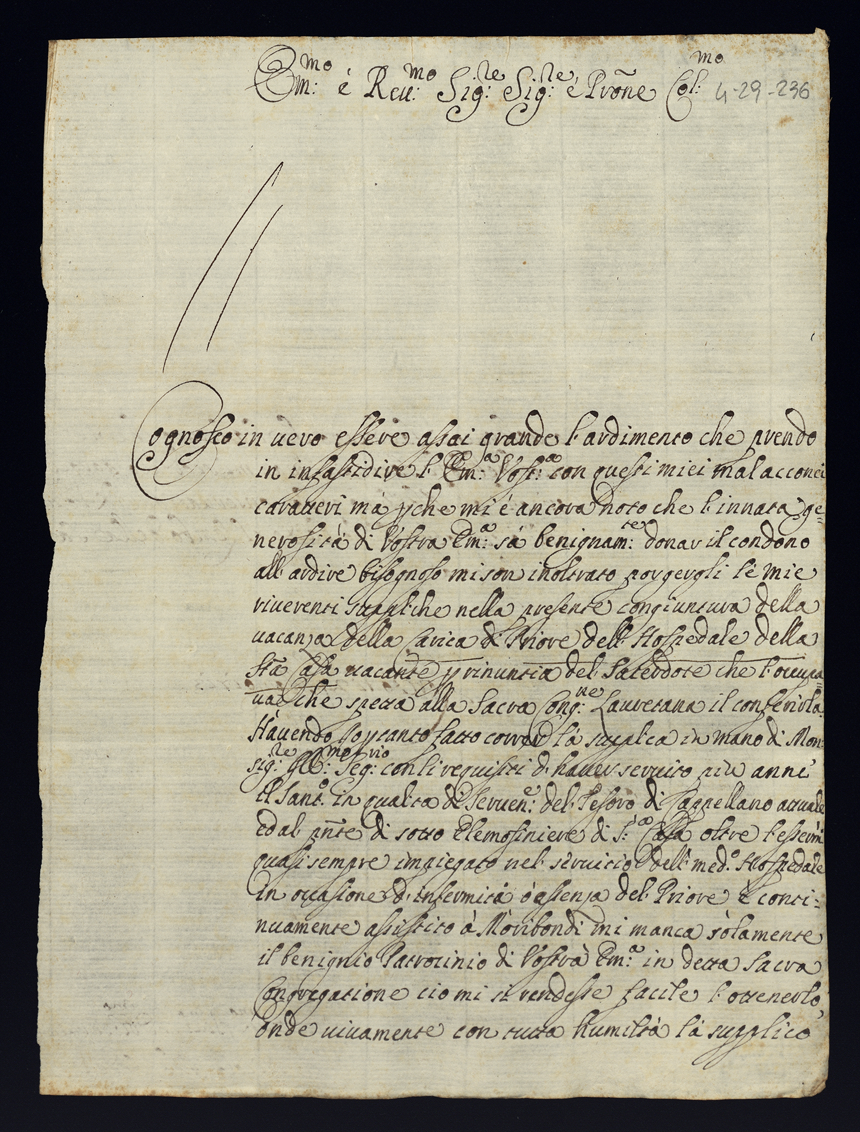 Em:mo é Reu:mo Sig:re Sig:re é Prõne Col:mo 4-29-236
Cognosco in uero essere assai grande l'ardimento che prendo
in infastidire l'Em:a Vost:a con questi miei mal acconci
caratteri má p che mi é ancora noto che l'innata ge=
nerositá di Vostra Em:a sá benignam:te donar il condono
all'ardire bisognoso mi son inoltrato porgergli le mie
riuerenti suppliche nella presente congiuntura della
uacanza della Carica di Priore dell'Hospedale della
Sta Casa uacante p rinuntia del Sacerdote che l'occupa=
ua che spetta alla Sacra Cong:ne Lauretana il conferirla.
Hauendo p tanto fatto correr la supplica in mano di Mon=
sig:re Seg:rio con li requisiti di hauer seruito più anni
il Sant:o in qualita di del Tesoro di Cappellano attuale
ed al pnte di sotto Elemosiniere di S:a Casa oltre l'esserni
quasi sempre impiegato nel seruicio dell'med:o Hospedale
in occasione di infermitá ó assenza del Priore é conti=
nuamente assistito á Moribondi mi manca solamente
il benignio Patrocinio di Vostra Em:a in detta Sacra
Congregatione ció mi si rendesse facile l'ottenerlo,
onde uiuamente con tutta humiltá la supplico